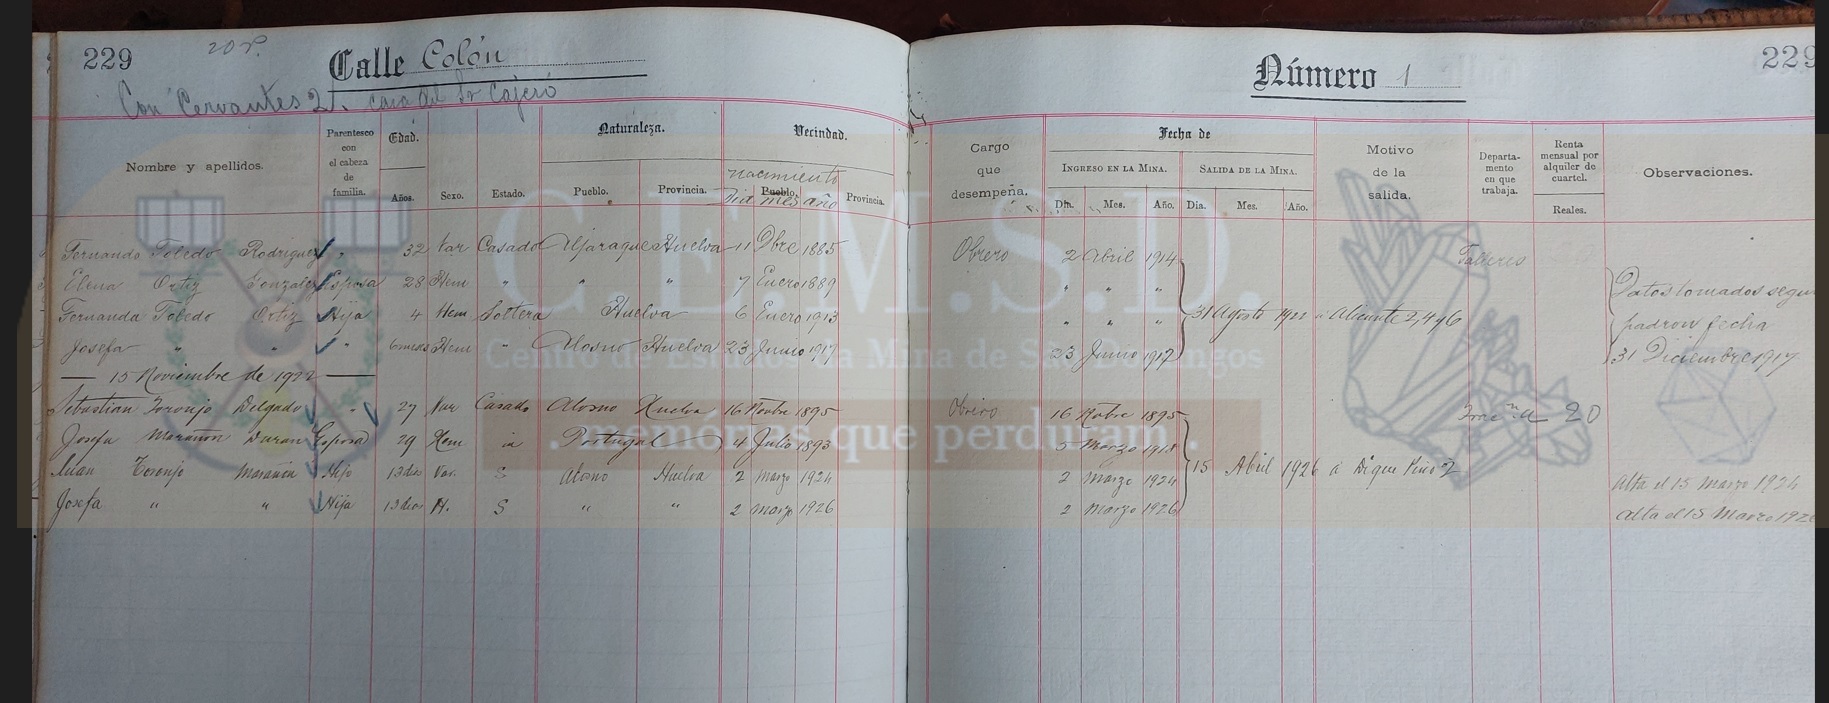 229 Calle Colón Número 1 229
Con Cervantes 2. casa del Sr Cajero
Nombre y apellidos. Parentesco con el cabeza de familia. Edad. Años. Sexo. Estado. Naturaleza. Pueblo. Provincia. Vecindad. nacimiento Pueblo. Dia mes año Provincia. Cargo que desempeña. Fecha de INGRESO EN LA MINA. Día. Mes. Año. SALIDA DE LA MINA. Día. Mes. Año. Motivo de la salida. Departamento en que trabaja. Renta mensual por alquiler de cuartel. Reales. Observaciones.
Fernando Toledo Rodriguez " 32 Var Casado Huelva 11 Dbre 1885 Obrero 2 Abril 1914 Talleres
Elena Ortiz Gonzalez Esposa 28 Hem " " " 7 Enero 1889 " " " Datos tomados segun
Fernanda Toledo Ortiz Hija 4 Hem Soltera Huelva 6 Enero 1913 " " " 31 Agosto 1922 a Alicante 2,4 y 6 padron fecha
Josefa " " " 6 meses Hem " Alosno Huelva 23 Junio 1917 23 Junio 1917 31 Diciembre 1917
— 15 Noviembre de 1922 —
Sebastian Toronjo Delgado " 27 Var Casado Alosno Huelva 16 Novbre 1895 Obrero 16 Nobre 1895 20
Josefa Marañon Duran Esposa 29 Hem id Portugal 4 Julio 1893 5 Marzo 1918
Juan Toronjo Marañon Hijo 13 dias Var. S Alosno Huelva 2 marzo 1924 2 Marzo 1924 15 Abril 1926 á Dique Pino 2 Alta el 15 Marzo 1924
Josefa " " Hija 13 dias H. S " " 2 marzo 1926 2 Marzo 1926 Alta el 15 Marzo 1926
C.E.M.S.D.
Centro de Estudios da Mina de São Domingos
. memórias que perduram .